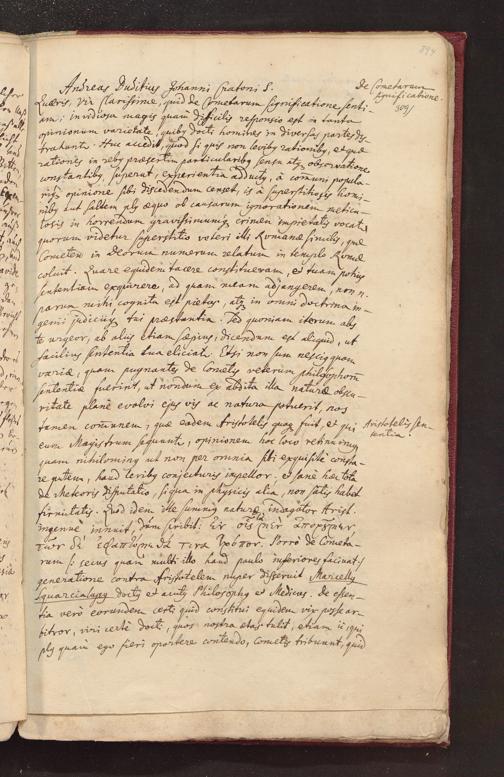 Andreas Duditius Johanni Cratoni S.
Quæris, vir clarissime, quid de Cometarum significatione senti-
am; invidiosa magis quam difficilis responsio est in tanta
opinionum varietate, quibus docti homines in diversas partes dis-
trahunt. Huc accedit, quod si quis non levibus rationibus, et quæ
rationes in rebus præsertim particularibus sensu atque observatione
constantibus superat, experientia adductus, à comuni popula-
rique opinione sibi discedendum censet, is à superstitiosis homi-
nibus aut saltem plus æquo ob causarum ignorationem meticu-
losis in horrendum gravissimumque crimen impietatis vocatur
quorum videtur superstitio veteri illi Romanæ similis, quæ
Cometem in Deorum numerum relatum in templo Romæ
coluit. Quare equidem tacere constitueram, et tuam potius
sententiam exquirere, ad quam meam adjungerem, non n.
parum mihi cognita est pietas, atque in omni doctrina in-
genii judiciique tui præstantia. Sed quoniam iterum abs
te urgeor, ab aliis etiam sæpius, dicendum est aliquid, ut
facilius sententia tua eliciatur. Etsi non sum nescius quam
variæ, quam pugnantes de Cometis veterum philosophorum
sententiæ fuerint, ut nondum ex abdita illa naturæ obscu-
ritate plane evolvi ejus vis ac natura potuerit, nos
tamen comunem, quæ eadem Aristotelis quoque fuit, et qui
eum Magistrum sequuntur, opinionem hoc loco retinuimus
quam nihilominus ut non per omnia sibi exquisite consta-
re putem, haud levibus conjecturis impellor. et sane hæc tota
de Meteoris disputatio, si qua in physicis alia, non satis habet
firmitatis. Quod idem ille summus naturæ indagator Arist.
ingenue innuit, dum scribit: ἐν οἷς τὰ μὲν ἀποροῦμεν,
τῶν δὲ ἐφαπτόμεθά τινα τρόπον. Porro de Cometa-
rum (secus quam multi illo haud paulo inferiores faciunt)
generatione contra Aristotelem nuper disseruit Marcellus
Squarcialupus doctus et acutus Philosophus et Medicus. De essen-
tia vero eorundem certi quid constitui equidem vix posse ar-
bitror, viri certe docti, quos nostra ætas tulit, etiam ii, qui
plus quam ego fieri oportere contendo, Cometis tribuunt, quid
De Cometarum
significatione
309
Aristotelis sen-
tentia.